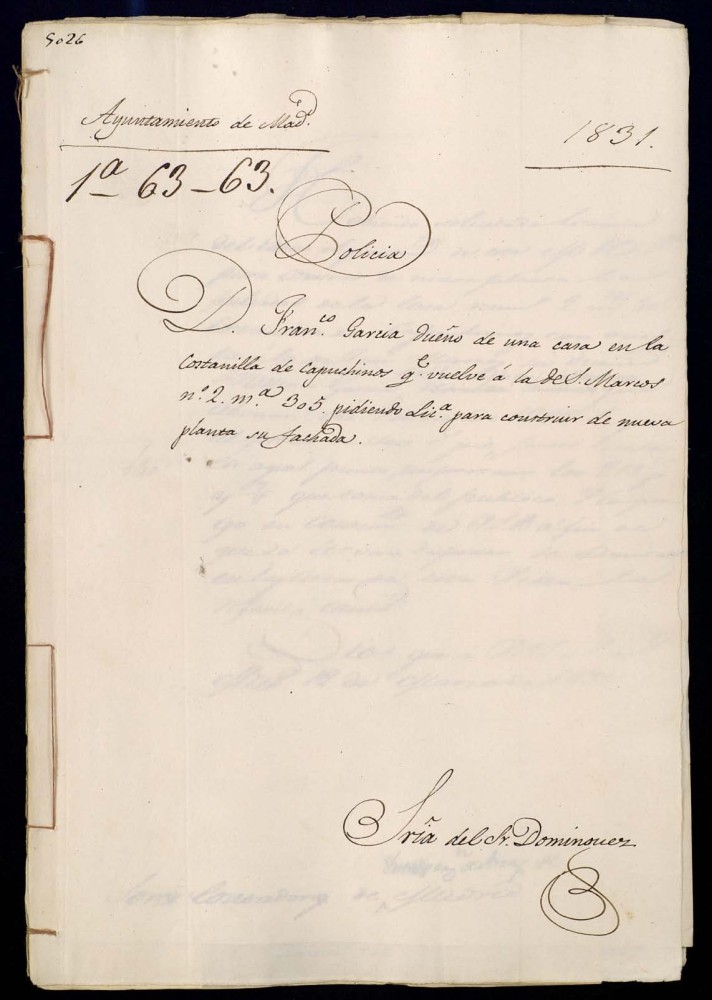 5026
Ayuntamiento de Mad.d
1831.
1ª 63-63.
Policia
D. Fran.co Garcia dueño de una casa en la
Costanilla de Capuchinos q.e vuelve á la de S. Marcos
n.º 2. m.ª 305. pidiendo Lic.ª para construir de nueva
planta su fachada.
Sria del Sr. Dominguez